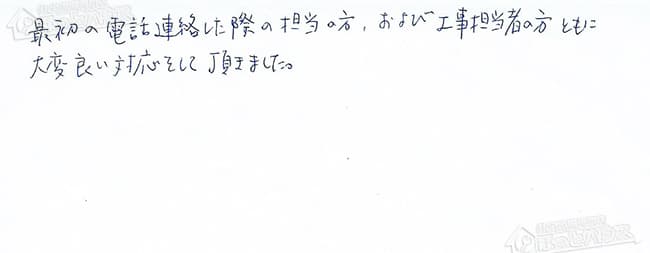 最初の電話連絡した際の担当の方、および工事担当者の方ともに
大変良い対応をして頂きました。